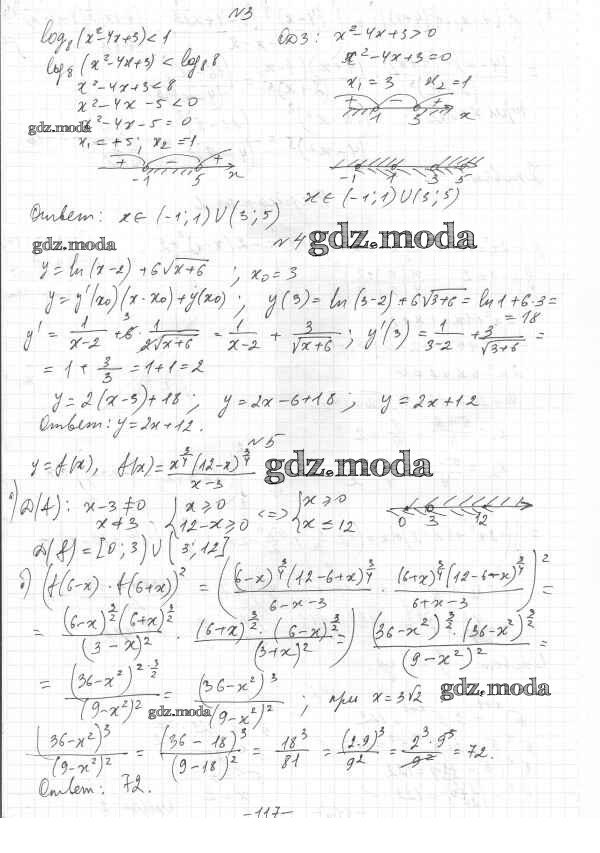 №3
log₈(x²-4x+3)<1 ОДЗ: x²-4x+3>0
log₈(x²-4x+3)<log₈8 x²-4x+3=0
x²-4x+3<8 x₁=3 x₂=1
x²-4x-5<0 + - + 1 3 x
gdz.moda x²-4x-5=0
x₁=+5; x₂=-1
+ - + -1 5 x -1 1 3 5
x∈(-1;1)∪(3;5)
Ответ: x∈(-1;1)∪(3;5)
gdz.moda №4 gdz.moda
y=ln(x-2)+6√x+6 ; x₀=3
y=y'(x₀)(x-x₀)+y(x₀); y(3)=ln(3-2)+6√3+6=ln1+6·3=
=18
y'=1/(x-2)+6·1/(2√x+6) 3 =1/(x-2)+3/√x+6; y'(3)=1/(3-2)+3/√3+6=
=1+3/3=1+1=2
y=2(x-3)+18; y=2x-6+18; y=2x+12
Ответ: y=2x+12.
№5
y=f(x), f(x)=x^(3/4)(12-x)^(3/4)/(x-3) gdz.moda
а) D(f): x-3≠0 { x≥0 <=> { x≥0
x≠3 12-x≥0 x≤12 0 3 12
D(f)=[0;3)∪(3;12]
б) (f(6-x)·f(6+x))²=((6-x)^(3/4)(12-6+x)^(3/4)/(6-x-3)·(6+x)^(3/4)(12-6-x)^(3/4)/(6+x-3))²=
=(6-x)^(3/2)(6+x)^(3/2)/(3-x)²·(6+x)^(3/2)·(6-x)^(3/2)/(3+x)²=(36-x²)^(3/2)·(36-x²)^(3/2)/(9-x²)²=
=(36-x²)^(2·3/2)/(9-x²)²=(36-x²)³/(9-x²)²; при x=3√2 gdz.moda
gdz.moda
(36-x²)³/(9-x²)²=(36-18)³/(9-18)²=18³/81=(2·9)³/9²=2³·9³/9²=72.
Ответ: 72.
-117-